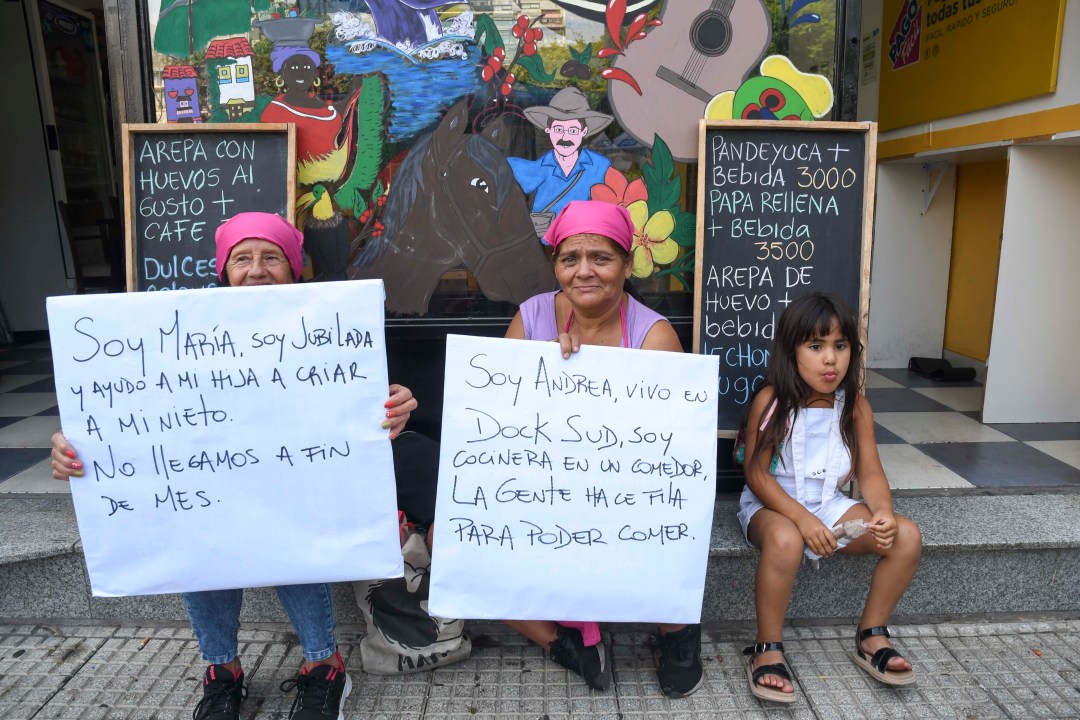 AREPA CON
HUEVOS AL
GUSTO +
CAFE
DULCES
PANDEYUCA +
BEBIDA 3000
PAPA RELLENA
+ BEBIDA
3500
AREPA DE
HUEVO +
bebida
PAGO
todas tus
FÁCIL, RÁPIDO Y SEGURO.
SOY MARÍA, SOY JUBILADA
Y AYUDO A MI HIJA A CRIAR
A MI NIETO.
NO LLEGAMOS A FIN
DE MES.
SOY ANDREA, VIVO EN
DOCK SUD, SOY
COCINERA EN UN COMEDOR,
LA GENTE HACE FILA
PARA PODER COMER.